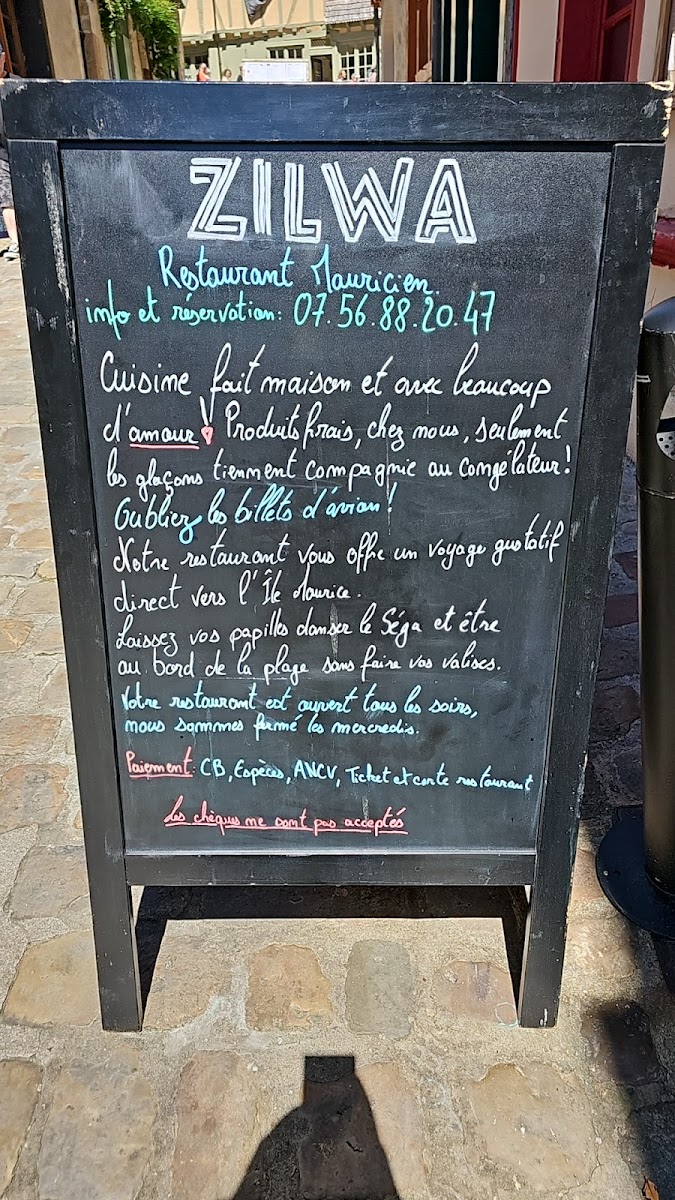 ZILWA
Restaurant Mauricien.
info et réservation: 07.56.88.20.47
Cuisine fait maison et avec beaucoup
d'amour Produits frais, chez nous, seulement
les glaçons tiennent compagnie au congélateur!
Oubliez les billets d'avion!
Notre restaurant vous offre un voyage gustatif
direct vers l'Île Maurice.
Laissez vos papilles danser le Séga et être
au bord de la plage sans faire vos valises.
Votre restaurant est ouvert tous les soirs,
nous sommes fermé les mercredis.
Paiement: CB, Espèces, ANCV, Ticket et carte restaurant
Les chèques ne sont pas acceptés